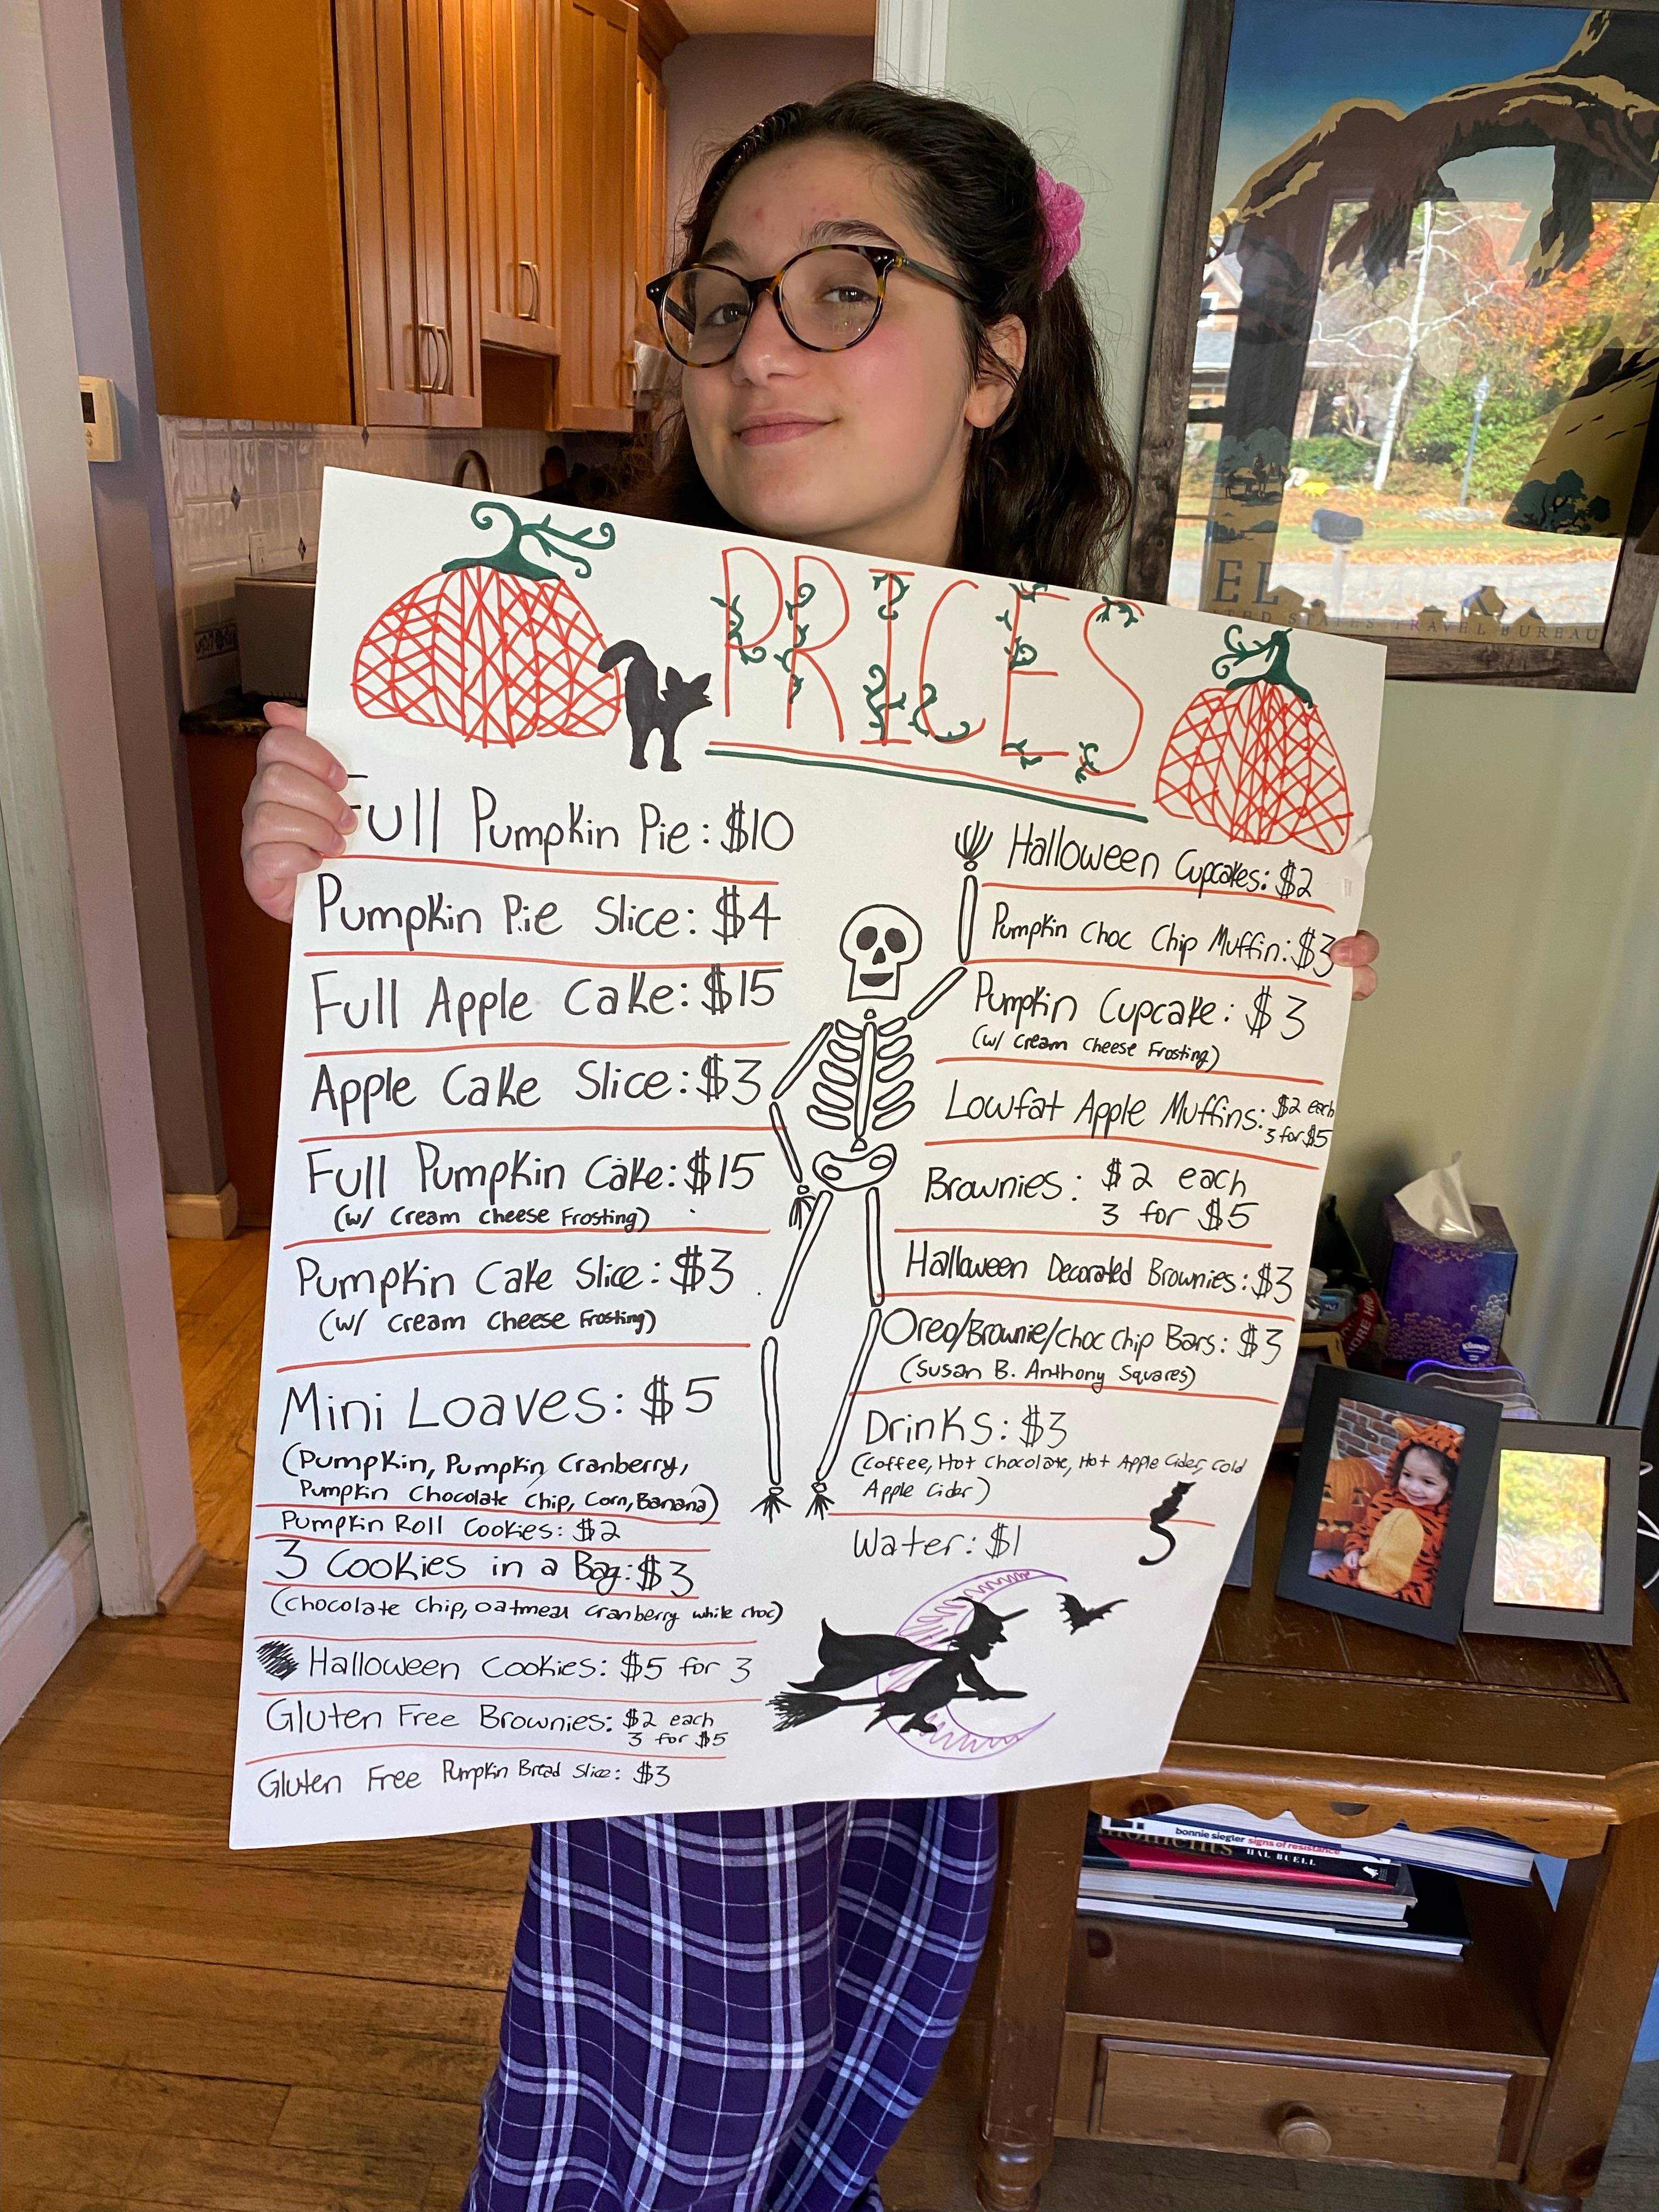 PRICES
Full Pumpkin Pie: $10
Pumpkin Pie Slice: $4
Full Apple Cake: $15
Apple Cake Slice: $3
Full Pumpkin Cake: $15
(w/ Cream Cheese Frosting)
Pumpkin Cake Slice: $3
(w/ Cream Cheese Frosting)
Mini Loaves: $5
(Pumpkin, Pumpkin Cranberry,
Pumpkin Chocolate Chip, Corn, Banana)
Pumpkin Roll Cookies: $2
3 Cookies in a Bag: $3
(Chocolate Chip, Oatmeal Cranberry white choc)
Halloween Cookies: $5 for 3
Gluten Free Brownies: $2 each
3 for $5
Gluten Free Pumpkin Bread Slice: $3
Halloween Cupcakes: $2
Pumpkin Choc Chip Muffin: $3
Pumpkin Cupcake: $3
(w/ Cream Cheese Frosting)
Lowfat Apple Muffins: $2 each
3 for $5
Brownies: $2 each
3 for $5
Halloween Decorated Brownies: $3
Oreo/Brownie/Choc Chip Bars: $3
(Susan B. Anthony Squares)
Drinks: $3
(Coffee, Hot Chocolate, Hot Apple Cider, Cold
Apple Cider)
Water: $1
EE
STATES TRAVEL BUREAU
Kleenex
bonnie siegler signs of resistance
HAL BUELL